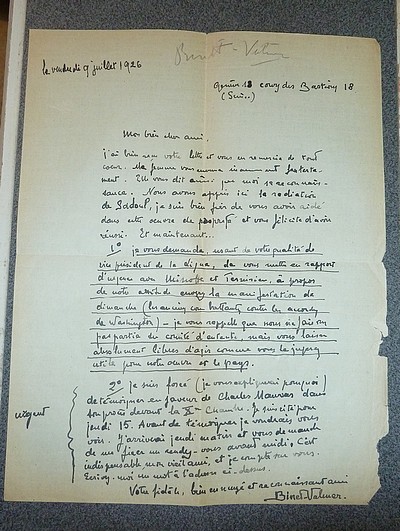 Binet-Valmer
le vendredi 9 juillet 1926
18 cours des Bastions 18
(Sui..)
Mon bien cher ami,
j'ai bien reçu votre lettre et vous en remercie de tout
cœur. Ma femme vous
ment. Elle vous dit ainsi que moi sa reconnais-
sance. Nous avons appris ici la radiation
de Sadoul, je suis bien fier de vous avoir aidé
dans cette œuvre de propreté et vous félicite d'avoir
réussi. Et maintenant...
1° je vous demande, usant de votre qualité de
vice président de la Ligue, de vous mettre en rapport
d'urgence avec Missoffe et Ternisien, à propos
de notre attitude envers la manifestation de
dimanche (les anciens combattants contre les accords
de Washington) - je vous rappelle que nous ne faisons
pas partie du comité d'entente mais vous laisse
absolument libres d'agir comme vous le jugerez
utile pour notre œuvre et le pays.
urgent
2° je suis forcé (je vous expliquerai pourquoi)
de témoigner en faveur de Charles Maurras dans
son procès devant la Xe Chambre. Je suis cité pour
jeudi 15. Avant de témoigner je voudrais vous
voir. J'arriverai jeudi matin et vous demande
de me fixer un rendez-vous avant midi, c'est
indispensable mon vieil ami, et je compte sur vous.
Ecrivez-moi un mot à l'adresse ci-dessus.
Votre fidèle, bien ennuyé et reconnaissant ami
Binet-Valmer